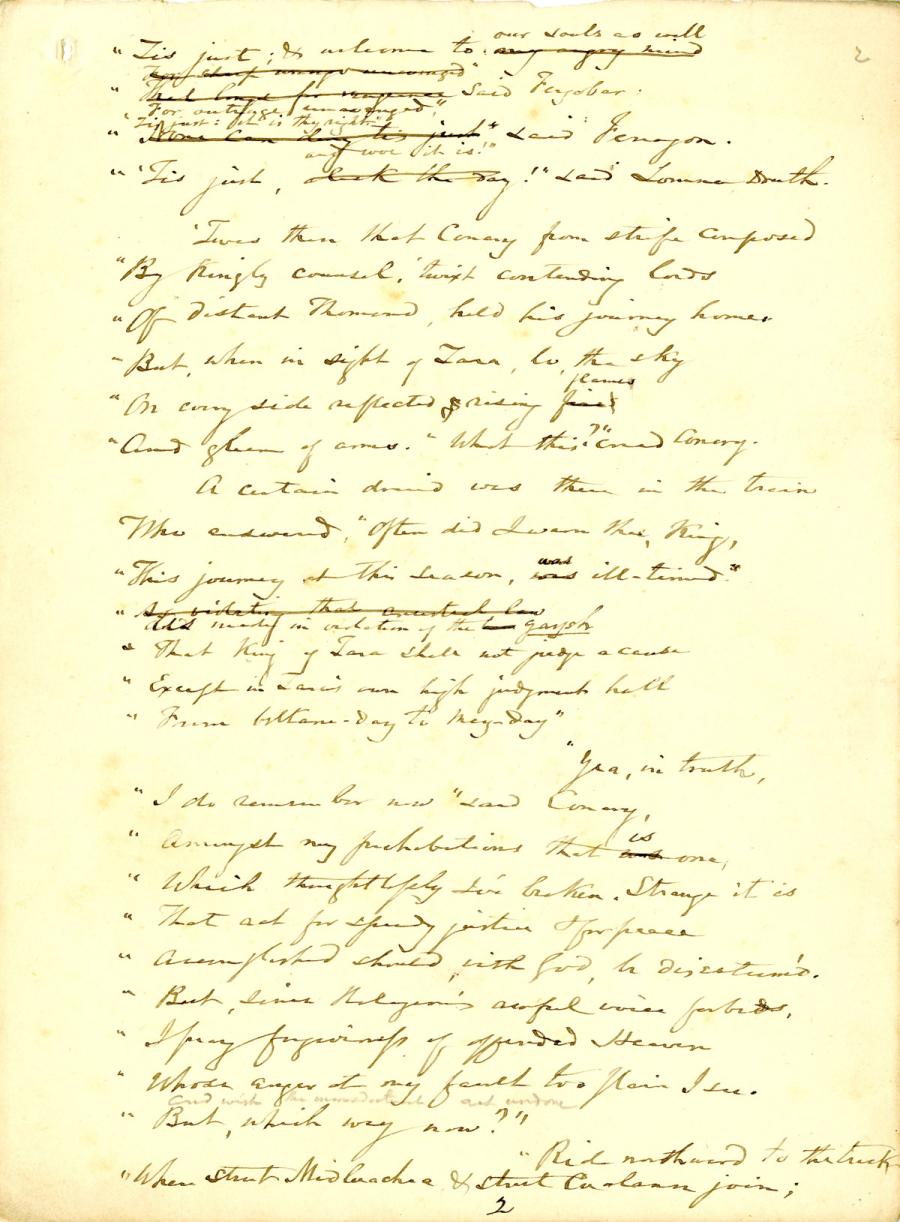 2
our souls as will
"'Tis just; & welcome to my angry mind
For sharp wrongs unavenged"
"That longs for vengeance said Fergobar:
For outrage unavenged,"
'Tis just: it is thy right"
"None can deny 'tis just" said Ferragon.
and woe it is!"
"'Tis just, aleck the day!" said Lomna Druth.
'Twas then that Conary from strife composed
"By Kingly counsel, 'twixt contending lords
"Of distant Thomond, held his journey home.
"But, when in sight of Tara, lo, the sky
flames
"On every side reflected rising fires
"And gleam of arms. "What this?" cried Conary.
A certain druid was there in the train
Who answered, "Often did I warn thee, King,
was
"This journey at this season, was ill-timed"
"As violating that ancestral law
As made in violation of the gaysh
"That King of Tara shall not judge a cause
"Except in Tara's own high judgment hall
"From biltane-day to May-day"
"Yea, in truth,
"I do remember now" said Conary,
is
"Amongst my prohibitions that was one,
"Which thoughtlessly I've broken. Strange it is
"That act for speedy justice & for peace
"Accomplished should, with God, be disesteem'd.
"But, since Religion's awful voice forbids,
"I pray forgiveness of offended Heaven
"Whose anger at my fault too plain I see.
and wish the act undone
"But, which way now?"
"Ride northward to the track
"Where street Midluachra & street Cualann join;
2